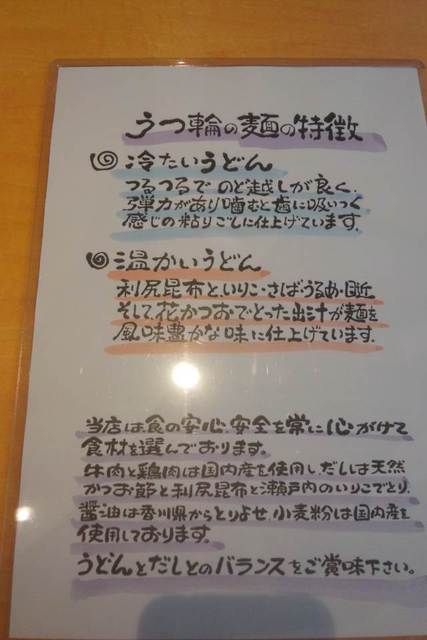 うつ輪の麺の特徴
冷たいうどん
つるつるでのど越しが良く、
弾力があり噛むと歯に吸いつく
感じの粘りごしに仕上げています。
温かいうどん
利尻昆布といりこ・さば・うるめ・目近
そして花かつおでとった出汁が麺を
風味豊かな味に仕上げています。
当店は食の安心、安全を常に心がけて
食材を選んでおります。
牛肉と鶏肉は国内産を使用し、だしは天然
かつお節と利尻昆布と瀬戸内のいりこでとり、
醤油は香川県からとりよせ、小麦粉は国内産を
使用しております。
うどんとだしとのバランスをご賞味下さい。